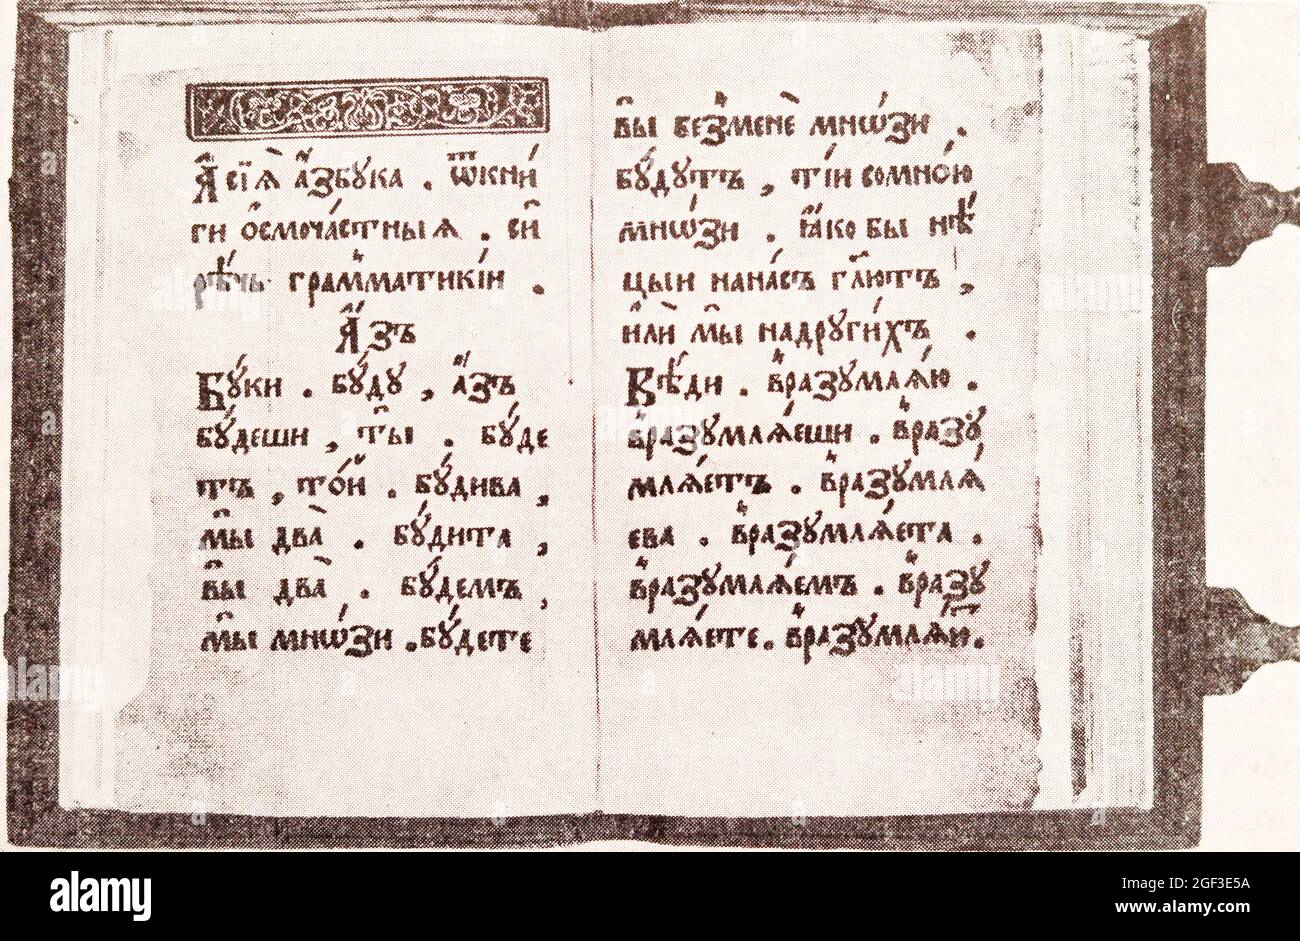 А҆ сїѧ̀ а҆́збꙋка . ѿ кни́
ги ѻ҆смоча́стныѧ . си́
рѣчь грамма́тикїи .
А҆́зъ
Бꙋ́ки . бꙋ́дꙋ , а҆́зъ
бꙋ́деши , ты̀ . бꙋ́де
тъ , то́й . бꙋ́дива ,
мы̀ два̀ . бꙋ́дита ,
вы̀ два̀ . бꙋ́демъ ,
мы̀ мнѡ́зи . бꙋ́дете
вы̀ безменѐ мнѡ́зи .
бꙋ́дꙋтъ , ті́и сомно́ю
мнѡ́зи . ꙗ҆́ко бы нѣ́
цыи нана́съ гл҃ютъ ,
и҆лѝ мы̀ надрꙋги́хъ .
Вѣ́ди . вразꙋмлѧ́ю .
вразꙋмлѧ́еши . вразꙋ
млѧ́етъ . вразꙋмлѧ́
ева . вразꙋмлѧ́ета .
вразꙋмлѧ́емъ . вразꙋ
млѧ́ете . вразꙋмлѧ́й .
alamy
Image ID: 2GF3E5A
www.alamy.com